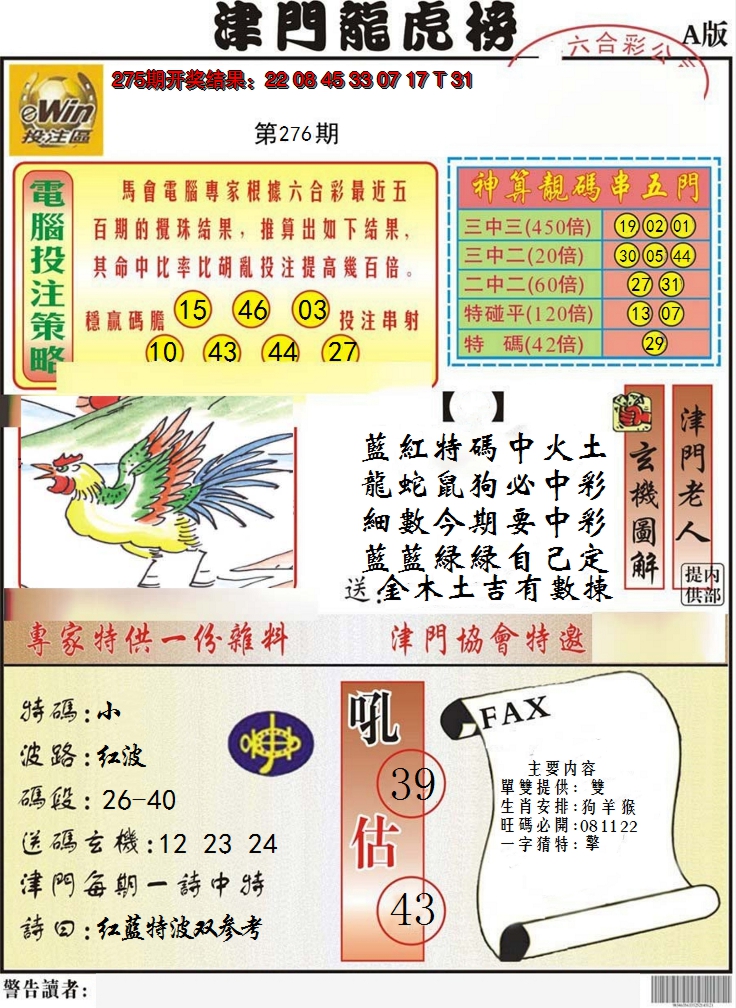 津門龍虎榜
A版
六合彩公
275期开奖结果：22 08 45 33 07 17 T 31
eWin
投注區
第276期
電腦投注策略
馬會電腦專家根據六合彩最近五
百期的攪珠结果，推算出如下结果，
其命中比率比胡亂投注提高幾百倍。
穩赢碼膽 15 46 03 投注串射
10 43 44 27
神算靚碼串五門
三中三(450倍) 19 02 01
三中二(20倍) 30 05 44
二中二(60倍) 27 31
特碰平(120倍) 13 07
特 碼(42倍) 29
【 】
藍紅特碼中火土
龍蛇鼠狗必中彩
細數今期要中彩
藍藍綠綠自己定
送:金木土吉有數揀
玄機圖解
津門老人
内部提供
專家特供一份雜料
津門協會特邀
特碼:小
波路:红波
碼段:26-40
送碼玄機:12 23 24
津門每期一詩中特
詩曰:红藍特波双参考
吼
39
估
43
FAX
主要内容
單雙提供：雙
生肖安排:狗羊猴
旺碼必開:081122
一字猜特：擎
警告讀者：